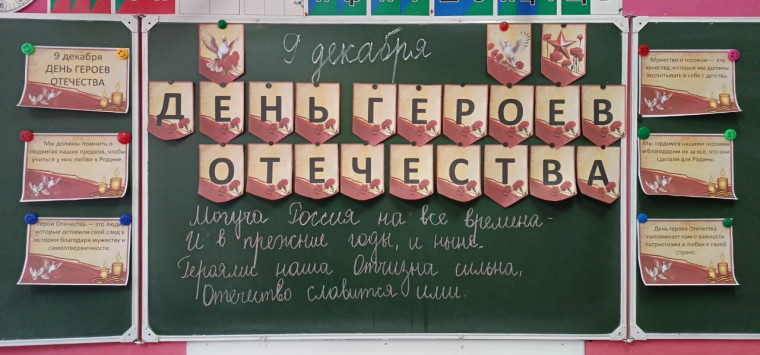 9 декабря
ДЕНЬ ГЕРОЕВ
ОТЕЧЕСТВА
Мы должны помнить о
подвигах наших предков, чтобы
учиться у них любви к Родине.
Герои Отечества — это люди,
которые оставили свой след в
истории благодаря мужеству и
самоотверженности.
9 декабря
ДЕНЬ ГЕРОЕВ
ОТЕЧЕСТВА
Могуча Россия на все времена -
И в прежние годы, и ныне.
Героями наша Отчизна сильна,
Отечество славится ими.
Мужество и героизм — это
качества, которые мы должны
воспитывать в себе с детства.
Мы гордимся нашими героями
и благодарим их за всё, что они
сделали для Родины.
День героев Отечества
напоминает нам о важности
патриотизма и любви к своей
стране.